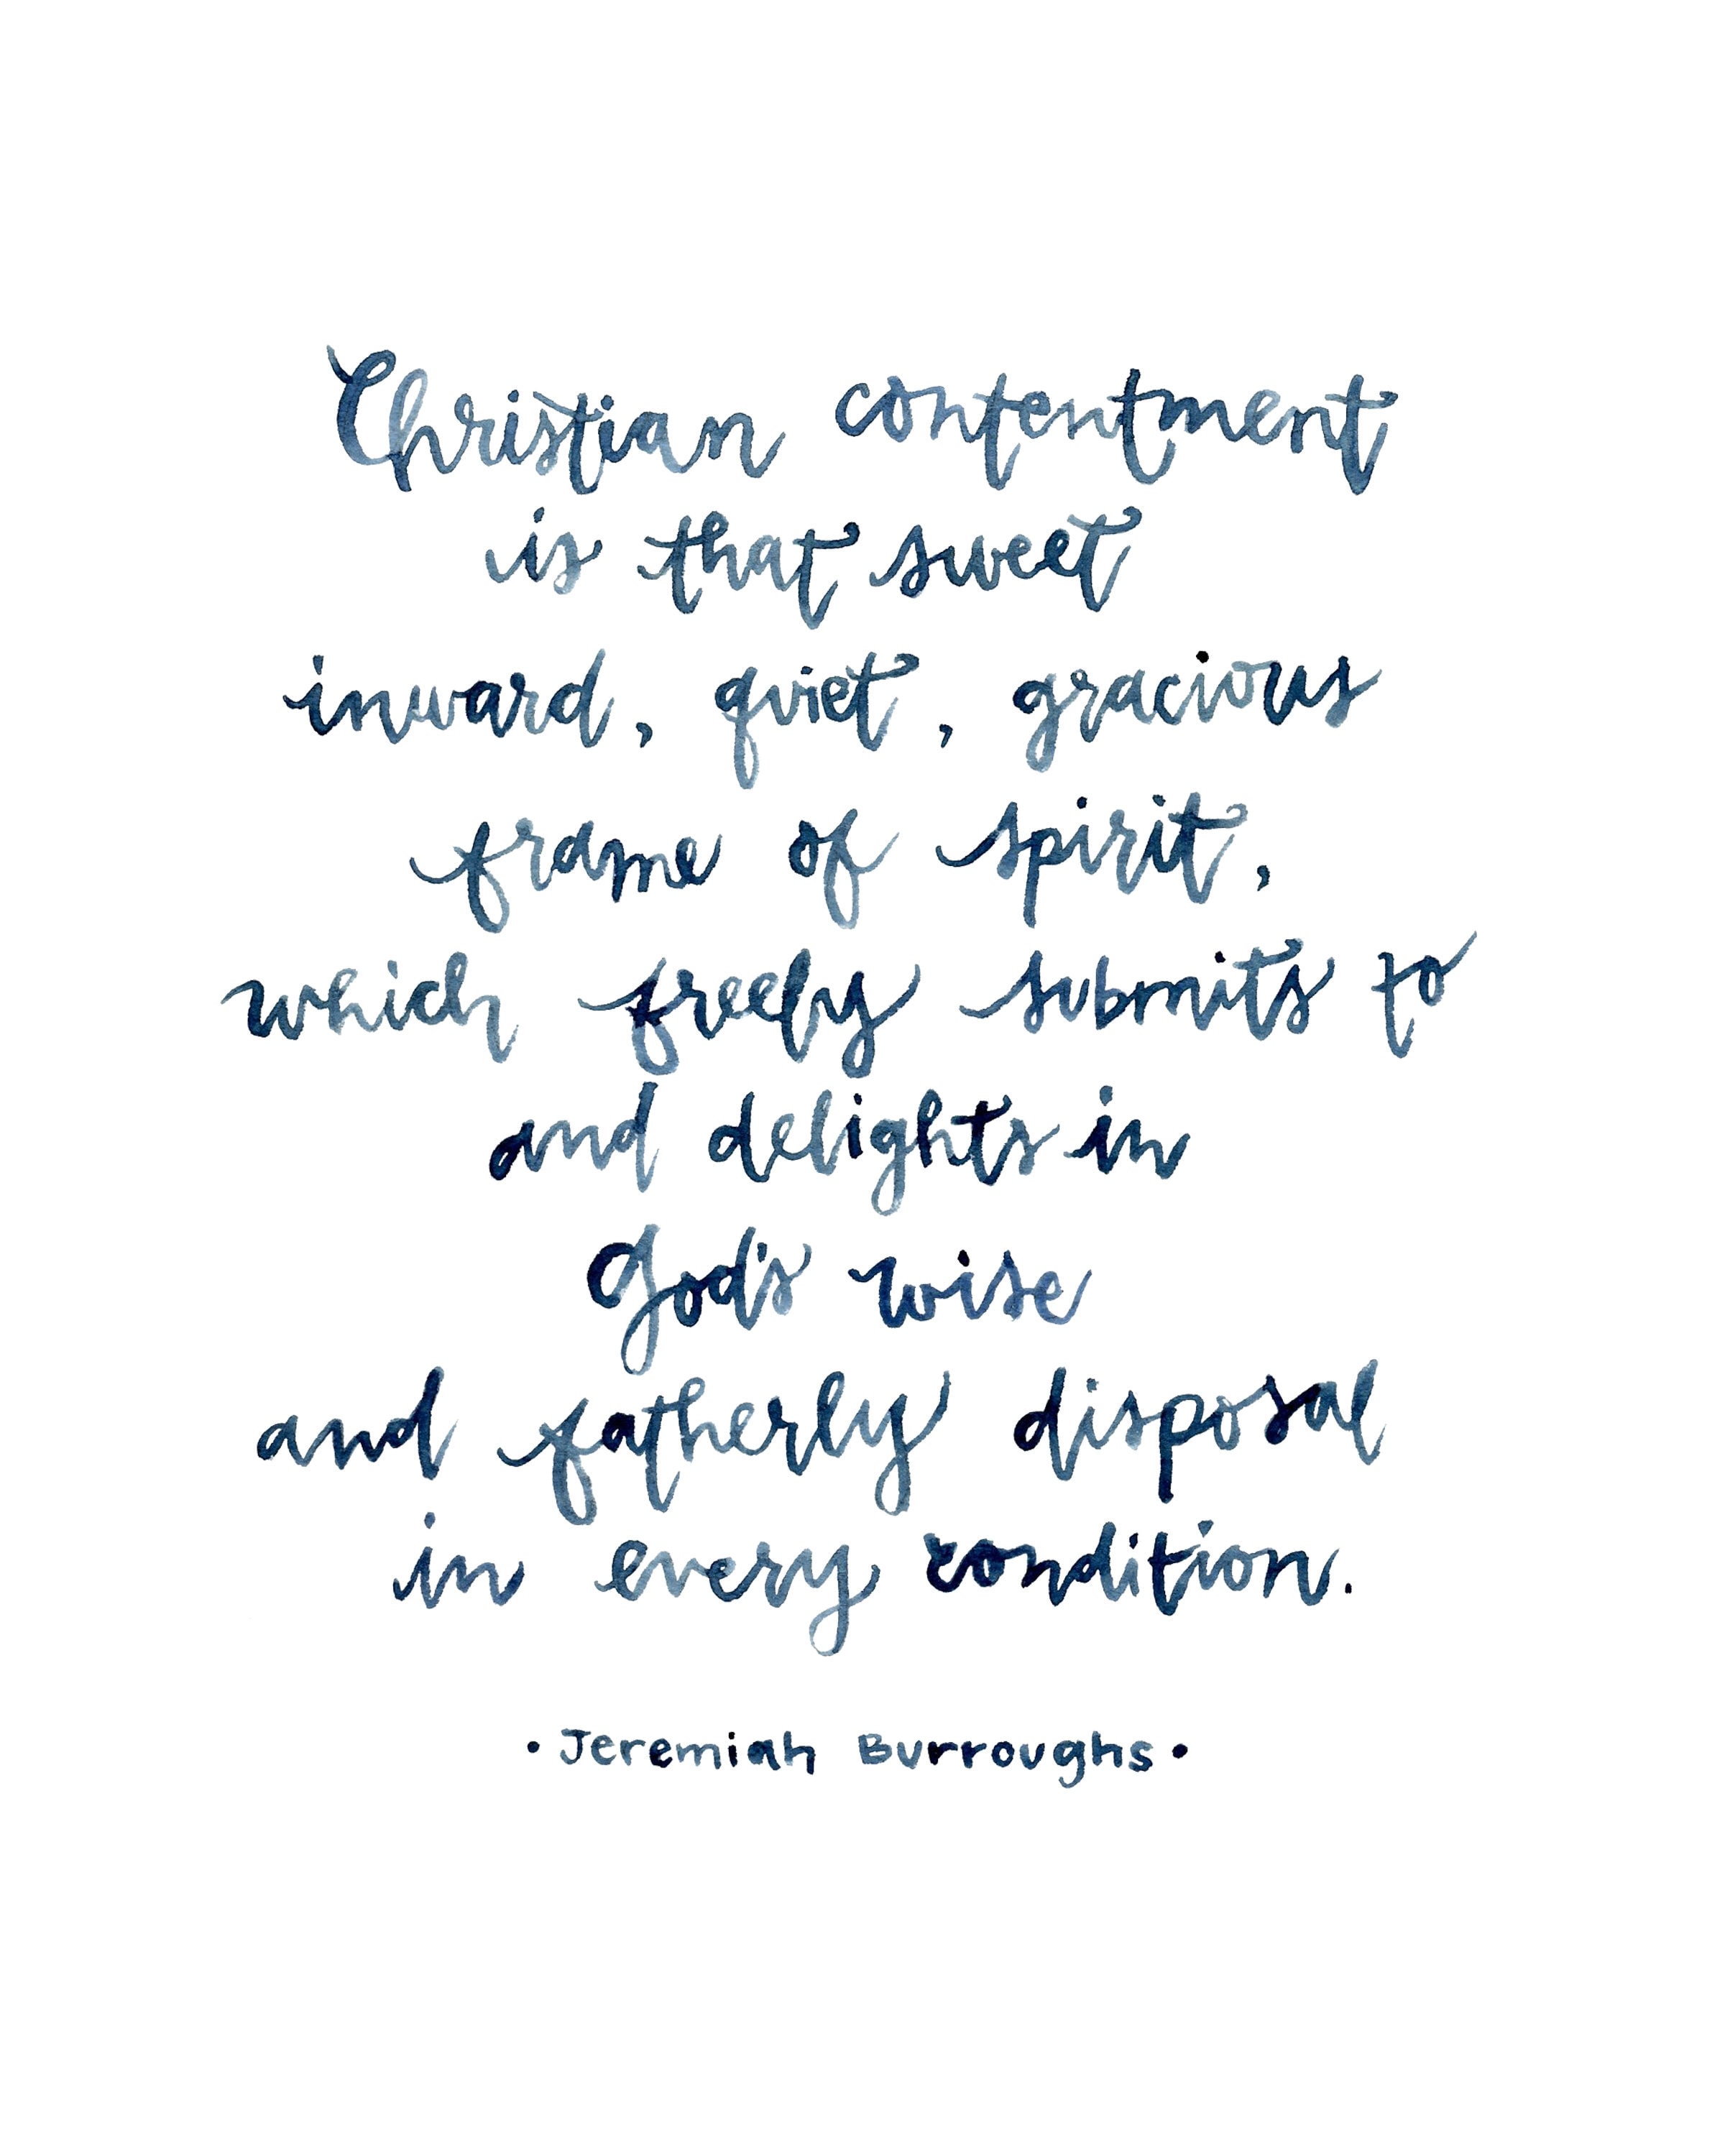 Christian contentment
is that sweet
inward, quiet, gracious
frame of spirit,
which freely submits to
and delights in
God's wise
and fatherly disposal
in every condition.
• Jeremiah Burroughs •